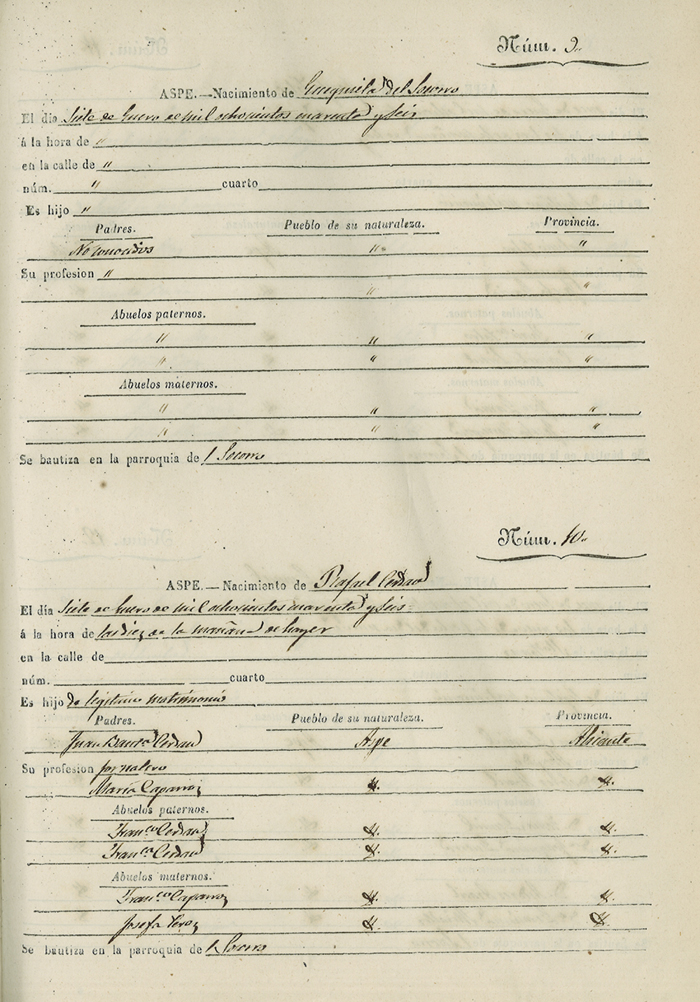 Núm. 9
ASPE.—Nacimiento de Ezequiela del Socorro
El día Siete de Enero de mil ochocientos cuarenta y seis
á la hora de "
en la calle de "
núm. " cuarto
Es hijo "
Padres. Pueblo de su naturaleza. Provincia.
No conocidos " "
Su profesion "
" "
Abuelos paternos.
" " "
" " "
Abuelos maternos.
" " "
" " "
Se bautiza en la parroquia de l Socorro
Núm. 10
ASPE.—Nacimiento de Rafael Cerdan
El día Siete de Enero de mil ochocientos cuarenta y seis
á la hora de las diez de la mañana de hayer
en la calle de
núm. cuarto
Es hijo de legitimo matrimonio
Padres. Pueblo de su naturaleza. Provincia.
Juan Cerdan Aspe Alicante
Su profesion jornalero
Maria Caparros
Abuelos paternos.
Franco Cerdan
Franca Cerdan
Abuelos maternos.
Franco Caparros
Josefa
Se bautiza en la parroquia de l Socorro